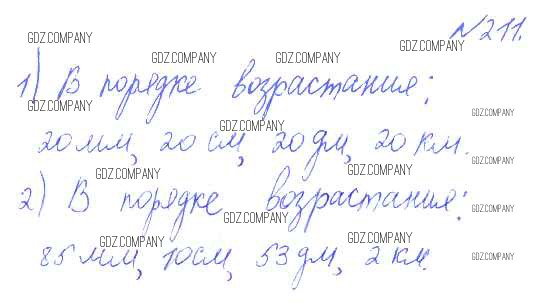 №211.
GDZ.COMPANY
GDZ.COMPANY
GDZ.COMPANY
GDZ.COMPANY
1) В порядке возрастания:
GDZ.COMPANY
GDZ.COMPANY
GDZ.COMPANY
20 мм, 20 см, 20 дм, 20 км.
GDZ.COMPANY
GDZ.COMPANY
GDZ.COMPANY
2) В порядке возрастания:
GDZ.COMPANY
GDZ.COMPANY
GDZ.COMPANY
GDZ.COMPANY
85 мм, 10 см, 53 дм, 2 км.
GDZ.COMPANY